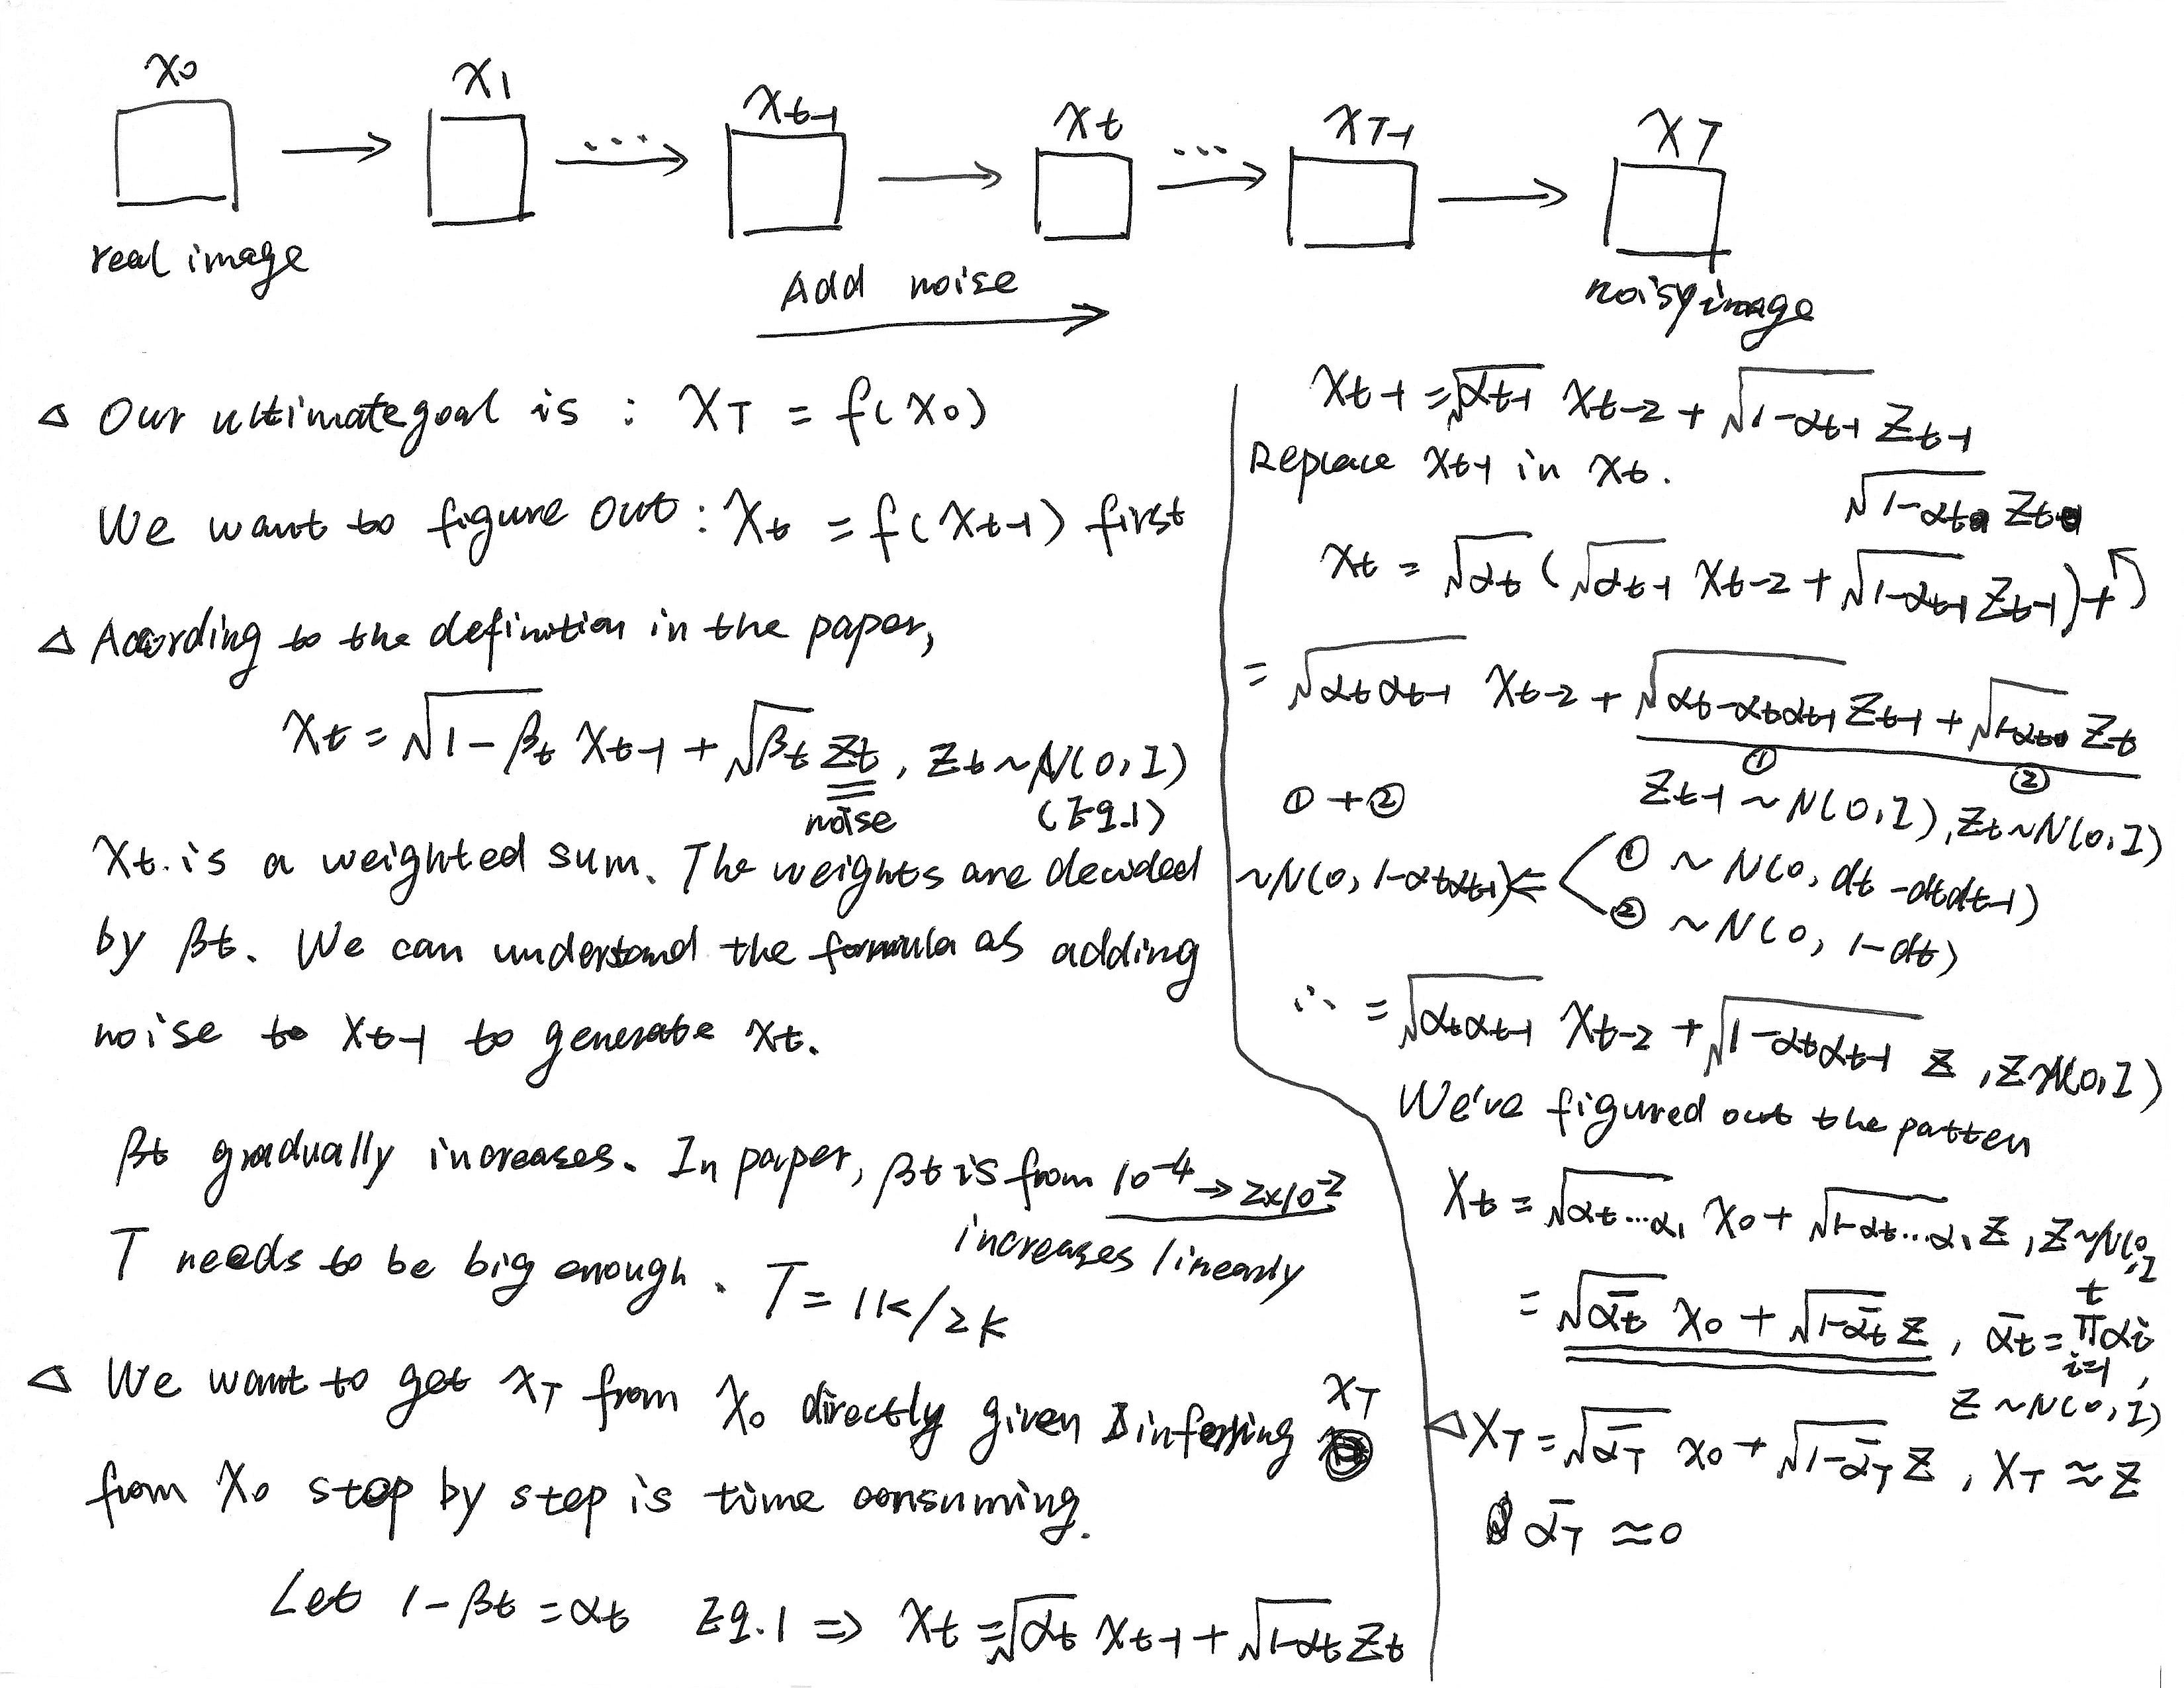 x0 x1 xt-1 xt xT-1 xT
... ...
real image
Add noise
noisy image
△ Our ultimate goal is : xT = f(x0)
We want to figure out : xt = f(xt-1) first
△ According to the definition in the paper,
xt = √(1-βt) xt-1 + √βt zt , zt ~ N(0,I)
noise (Eq.1)
xt is a weighted sum. The weights are decided
by βt. We can understand the formula as adding
noise to xt-1 to generate xt.
βt gradually increases. In paper, βt is from 10^-4 → 2x10^-2
increases linearly
T needs to be big enough. T = 1K/2K
△ We want to get xT from x0 directly given inferring xT
from x0 step by step is time consuming.
Let 1-βt = αt Eq.1 ⇒ xt = √αt xt-1 + √(1-αt) zt
xt-1 = √αt-1 xt-2 + √(1-αt-1) zt-1
Replace xt-1 in xt.
√(1-αt) zt
xt = √αt (√αt-1 xt-2 + √(1-αt-1) zt-1) +
= √(αtαt-1) xt-2 + √(αt-αtαt-1) zt-1 + √(1-αt) zt
① ②
zt-1 ~ N(0,I), zt ~ N(0,I)
① + ②
~N(0, 1-αtαt-1) ⇐ ① ~ N(0, αt-αtαt-1)
② ~ N(0, 1-αt)
∴ = √(αtαt-1) xt-2 + √(1-αtαt-1) z , z~N(0,I)
We've figured out the patten
xt = √(αt...α1) x0 + √(1-αt...α1) z , z~N(0,I
= √ᾱt x0 + √(1-ᾱt) z , ᾱt = t π i=1 αi ,
z ~ N(0,I)
△ xT = √ᾱT x0 + √(1-ᾱT) z , xT ≈ z
ᾱT ≈ 0